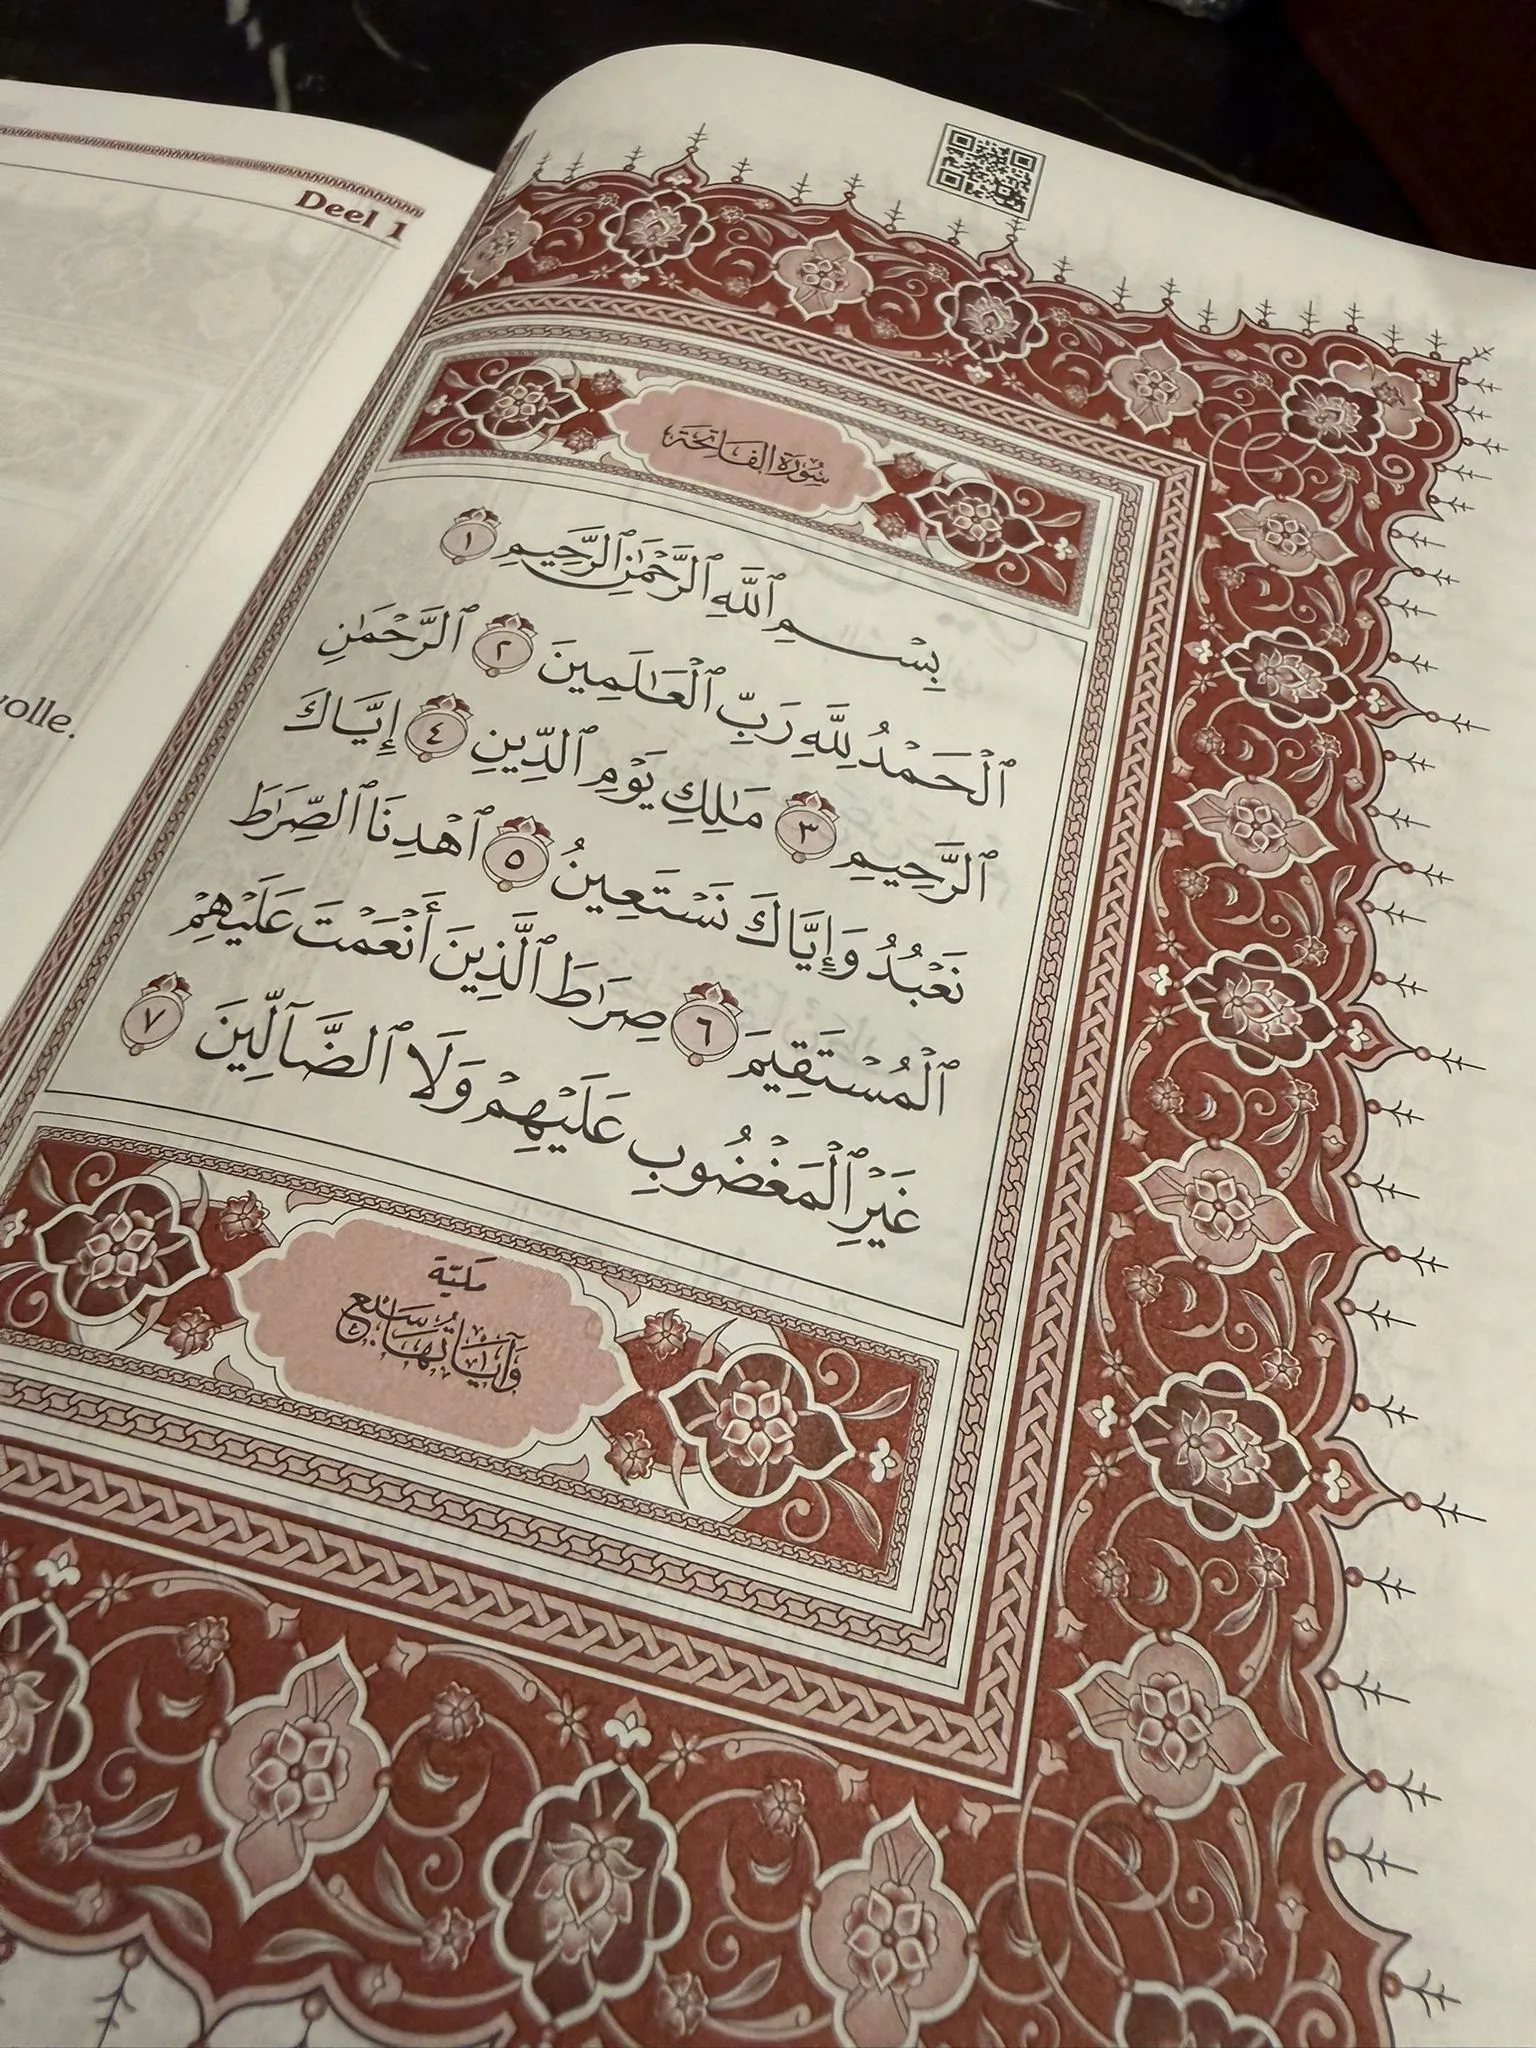 Deel 1
olle.
سُورَةُ الفَاتِحَة
بِسْمِ ٱللَّهِ ٱلرَّحْمَٰنِ ٱلرَّحِيمِ ١
ٱلْحَمْدُ لِلَّهِ رَبِّ ٱلْعَٰلَمِينَ ٢ ٱلرَّحْمَٰنِ
ٱلرَّحِيمِ ٣ مَٰلِكِ يَوْمِ ٱلدِّينِ ٤ إِيَّاكَ
نَعْبُدُ وَإِيَّاكَ نَسْتَعِينُ ٥ ٱهْدِنَا ٱلصِّرَٰطَ
ٱلْمُسْتَقِيمَ ٦ صِرَٰطَ ٱلَّذِينَ أَنْعَمْتَ عَلَيْهِمْ
غَيْرِ ٱلْمَغْضُوبِ عَلَيْهِمْ وَلَا ٱلضَّآلِّينَ ٧
مَكيّة
وَآيَاتُهَا سَبْعٌ